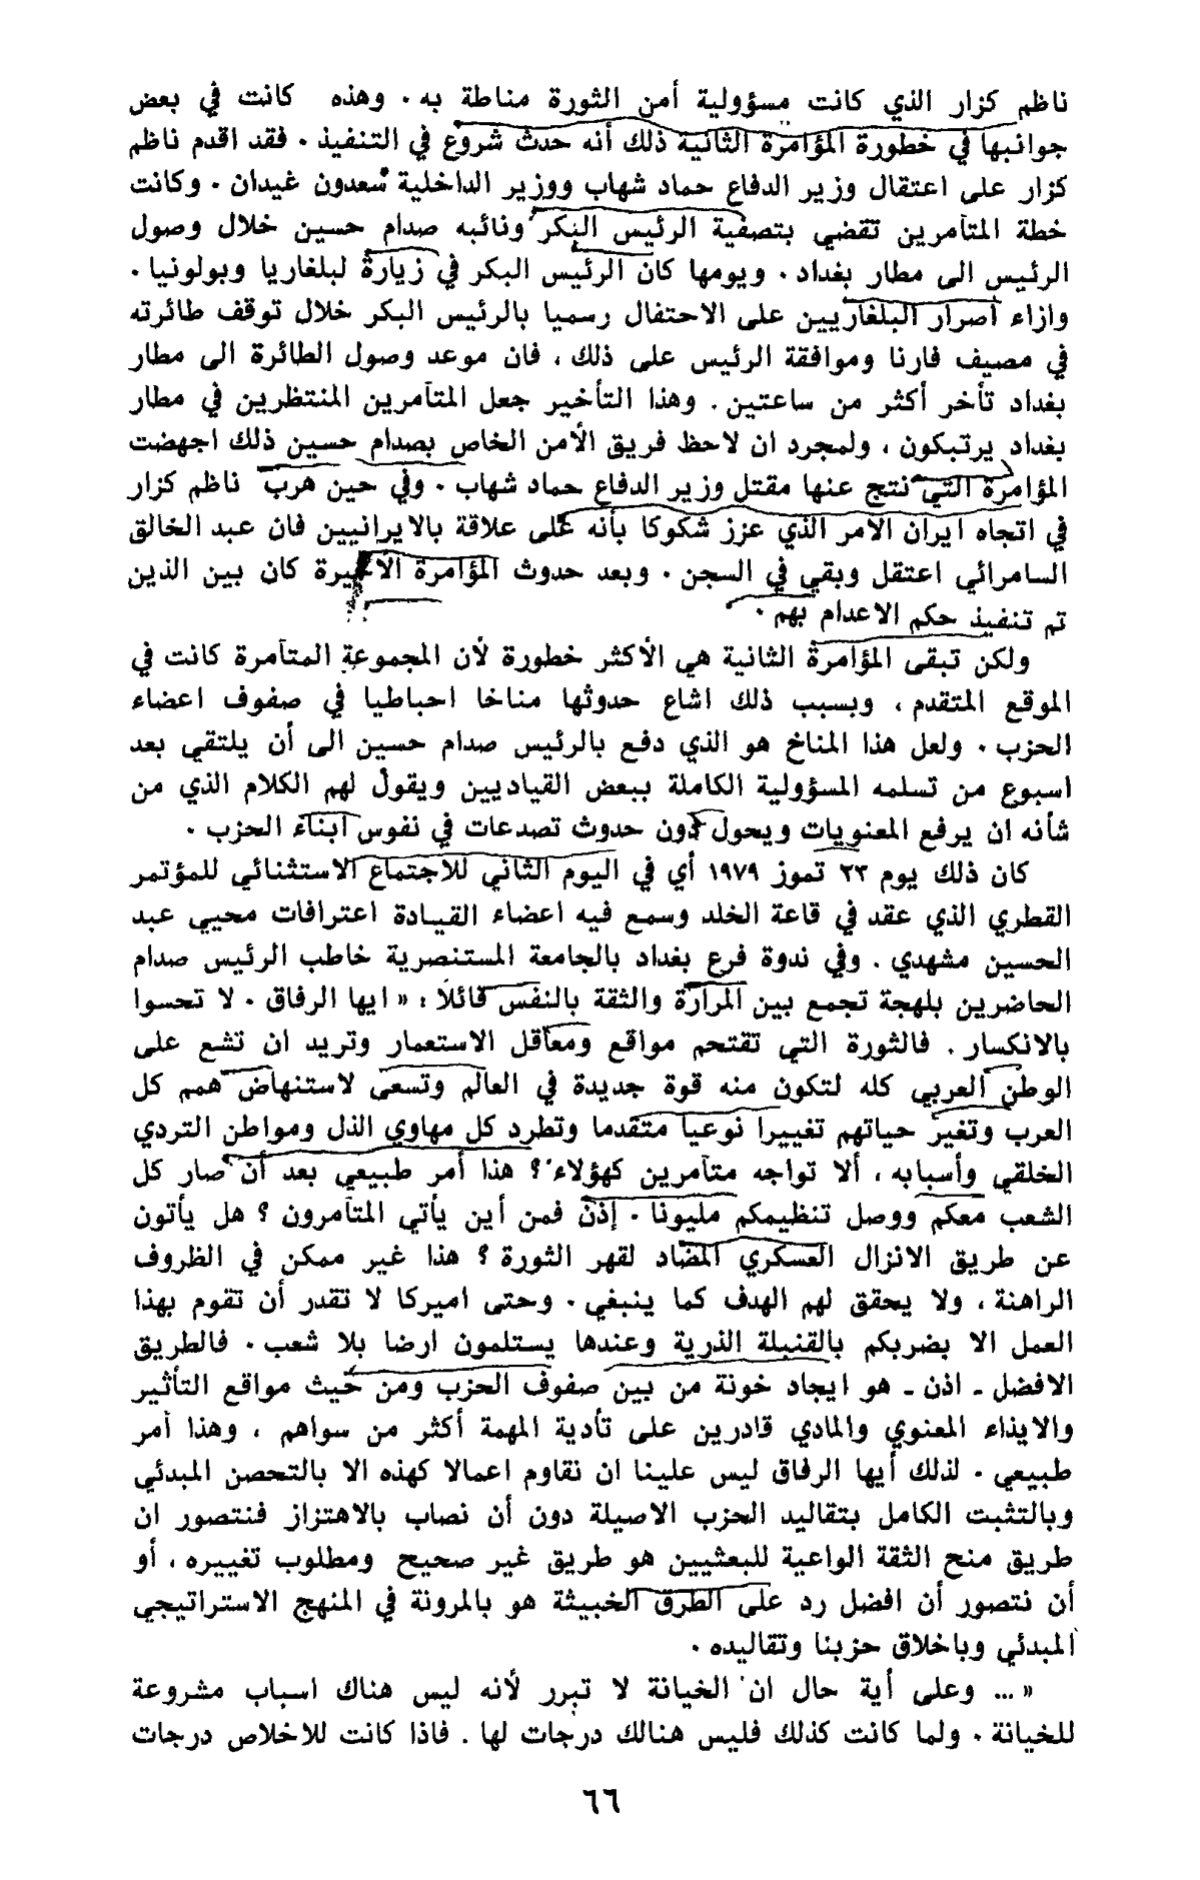 ناظم كزار الذي كانت مسؤولية أمن الثورة مناطة به . وهذه كانت في بعض
جوانبها في خطورة المؤامرة الثانية ذلك أنه حدث شروع في التنفيذ . فقد اقدم ناظم
كزار على اعتقال وزير الدفاع حماد شهاب ووزير الداخلية سعدون غيدان . وكانت
خطة المتآمرين تقضي بتصفية الرئيس البكر ونائبه صدام حسين خلال وصول
الرئيس الى مطار بغداد . ويومها كان الرئيس البكر في زيارة لبلغاريا وبولونيا .
وازاء اصرار البلغاريين على الاحتفال رسميا بالرئيس البكر خلال توقف طائرته
في مصيف فارنا وموافقة الرئيس على ذلك ، فان موعد وصول الطائرة الى مطار
بغداد تأخر أكثر من ساعتين . وهذا التأخير جعل المتآمرين المنتظرين في مطار
بغداد يرتبكون ، ولمجرد ان لاحظ فريق الأمن الخاص بصدام حسين ذلك اجهضت
المؤامرة التي نتج عنها مقتل وزير الدفاع حماد شهاب . وفي حين هرب ناظم كزار
في اتجاه ايران الأمر الذي عزز شكوكا بأنه على علاقة بالايرانيين فان عبد الخالق
السامرائي اعتقل وبقي في السجن . وبعد حدوث المؤامرة الاخيرة كان بين الذين
تم تنفيذ حكم الاعدام بهم .
ولكن تبقى المؤامرة الثانية هي الأكثر خطورة لأن المجموعة المتآمرة كانت في
الموقع المتقدم ، وبسبب ذلك اشاع حدوثها مناخا احباطيا في صفوف اعضاء
الحزب . ولعل هذا المناخ هو الذي دفع بالرئيس صدام حسين الى أن يلتقي بعد
اسبوع من تسلمه المسؤولية الكاملة ببعض القياديين ويقول لهم الكلام الذي من
شأنه ان يرفع المعنويات ويحول دون حدوث تصدعات في نفوس ابناء الحزب .
كان ذلك يوم ٢٣ تموز ١٩٧٩ أي في اليوم الثاني للاجتماع الاستثنائي للمؤتمر
القطري الذي عقد في قاعة الخلد وسمع فيه اعضاء القيادة اعترافات محيي عبد
الحسين مشهدي . وفي ندوة فرع بغداد بالجامعة المستنصرية خاطب الرئيس صدام
الحاضرين بلهجة تجمع بين المرارة والثقة بالنفس قائلا : « ايها الرفاق . لا تحسوا
بالانكسار . فالثورة التي تقتحم مواقع ومعاقل الاستعمار وتريد ان تشع على
الوطن العربي كله لتكون منه قوة جديدة في العالم وتسعى لاستنهاض همم كل
العرب وتغير حياتهم تغييرا نوعيا متقدما وتطرد كل مهاوي الذل ومواطن التردي
الخلقي وأسبابه ، ألا تواجه متآمرين كهؤلاء ؟ هذا أمر طبيعي بعد أن صار كل
الشعب معكم ووصل تنظيمكم مليونا . إذن فمن أين يأتي المتآمرون ؟ هل يأتون
عن طريق الانزال العسكري المضاد لقهر الثورة ؟ هذا غير ممكن في الظروف
الراهنة ، ولا يحقق لهم الهدف كما ينبغي . وحتى اميركا لا تقدر أن تقوم بهذا
العمل الا بضربكم بالقنبلة الذرية وعندها يستلمون ارضا بلا شعب . فالطريق
الافضل ـ اذن ـ هو ايجاد خونة من بين صفوف الحزب ومن حيث مواقع التأثير
والايذاء المعنوي والمادي قادرين على تأدية المهمة أكثر من سواهم ، وهذا أمر
طبيعي . لذلك أيها الرفاق ليس علينا ان نقاوم اعمالا كهذه الا بالتحصن المبدئي
وبالتثبت الكامل بتقاليد الحزب الاصيلة دون أن نصاب بالاهتزاز فنتصور ان
طريق منح الثقة الواعية للبعثيين هو طريق غير صحيح ومطلوب تغييره ، أو
أن نتصور أن افضل رد على الطرق الخبيثة هو بالمرونة في المنهج الاستراتيجي
المبدئي وباخلاق حزبنا وتقاليده .
« ... وعلى أية حال ان الخيانة لا تبرر لأنه ليس هناك اسباب مشروعة
للخيانة . ولما كانت كذلك فليس هنالك درجات لها . فاذا كانت للاخلاص درجات
٦٦